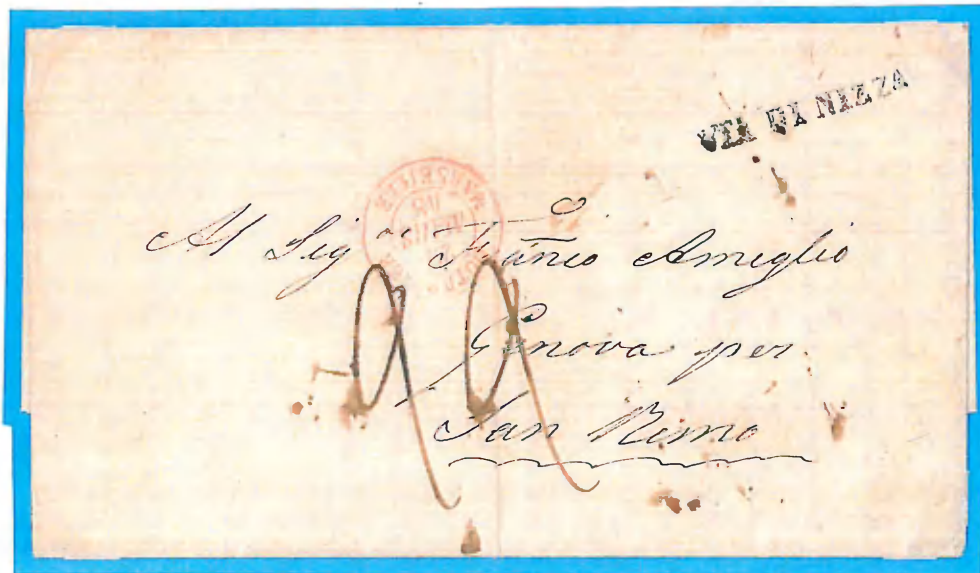 VIA DI NIZZA
MARSEILLE
Al Sig.re Fránco Ameglio
Genova per
San Remo
22